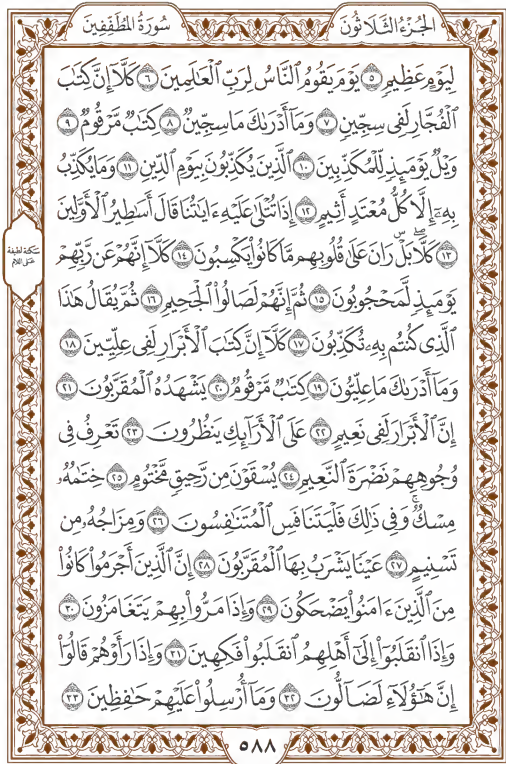 الجُزْءُ الثَّلَاثُونَ
سُورَةُ المُطَفِّفِينَ
لِيَوْمٍ عَظِيمٖ ٥ يَوۡمَ يَقُومُ ٱلنَّاسُ لِرَبِّ ٱلۡعَٰلَمِينَ ٦ كَلَّآ إِنَّ كِتَٰبَ
ٱلۡفُجَّارِ لَفِي سِجِّينٖ ٧ وَمَآ أَدۡرَىٰكَ مَا سِجِّينٞ ٨ كِتَٰبٞ مَّرۡقُومٞ ٩
وَيۡلٞ يَوۡمَئِذٖ لِّلۡمُكَذِّبِينَ ١٠ ٱلَّذِينَ يُكَذِّبُونَ بِيَوۡمِ ٱلدِّينِ ١١ وَمَا يُكَذِّبُ
بِهِۦٓ إِلَّا كُلُّ مُعۡتَدٍ أَثِيمٍ ١٢ إِذَا تُتۡلَىٰ عَلَيۡهِ ءَايَٰتُنَا قَالَ أَسَٰطِيرُ ٱلۡأَوَّلِينَ
١٣ كَلَّاۖ بَلۡۜ رَانَ عَلَىٰ قُلُوبِهِم مَّا كَانُواْ يَكۡسِبُونَ ١٤ كَلَّآ إِنَّهُمۡ عَن رَّبِّهِمۡ
يَوۡمَئِذٖ لَّمَحۡجُوبُونَ ١٥ ثُمَّ إِنَّهُمۡ لَصَالُواْ ٱلۡجَحِيمِ ١٦ ثُمَّ يُقَالُ هَٰذَا
ٱلَّذِي كُنتُم بِهِۦ تُكَذِّبُونَ ١٧ كَلَّآ إِنَّ كِتَٰبَ ٱلۡأَبۡرَارِ لَفِي عِلِّيِّينَ ١٨
وَمَآ أَدۡرَىٰكَ مَا عِلِّيُّونَ ١٩ كِتَٰبٞ مَّرۡقُومٞ ٢٠ يَشۡهَدُهُ ٱلۡمُقَرَّبُونَ ٢١
إِنَّ ٱلۡأَبۡرَارَ لَفِي نَعِيمٍ ٢٢ عَلَى ٱلۡأَرَآئِكِ يَنظُرُونَ ٢٣ تَعۡرِفُ فِي
وُجُوهِهِمۡ نَضۡرَةَ ٱلنَّعِيمِ ٢٤ يُسۡقَوۡنَ مِن رَّحِيقٖ مَّخۡتُومٍ ٢٥ خِتَٰمُهُۥ
مِسۡكٞۚ وَفِي ذَٰلِكَ فَلۡيَتَنَافَسِ ٱلۡمُتَنَٰفِسُونَ ٢٦ وَمِزَاجُهُۥ مِن
تَسۡنِيمٍ ٢٧ عَيۡنٗا يَشۡرَبُ بِهَا ٱلۡمُقَرَّبُونَ ٢٨ إِنَّ ٱلَّذِينَ أَجۡرَمُواْ كَانُواْ
مِنَ ٱلَّذِينَ ءَامَنُواْ يَضۡحَكُونَ ٢٩ وَإِذَا مَرُّواْ بِهِمۡ يَتَغَامَزُونَ ٣٠
وَإِذَا ٱنقَلَبُوٓاْ إِلَىٰٓ أَهۡلِهِمُ ٱنقَلَبُواْ فَكِهِينَ ٣١ وَإِذَا رَأَوۡهُمۡ قَالُوٓاْ
إِنَّ هَٰٓؤُلَآءِ لَضَآلُّونَ ٣٢ وَمَآ أُرۡسِلُواْ عَلَيۡهِمۡ حَٰفِظِينَ ٣٣
سكتة لطيفة
على اللام
٥٨٨